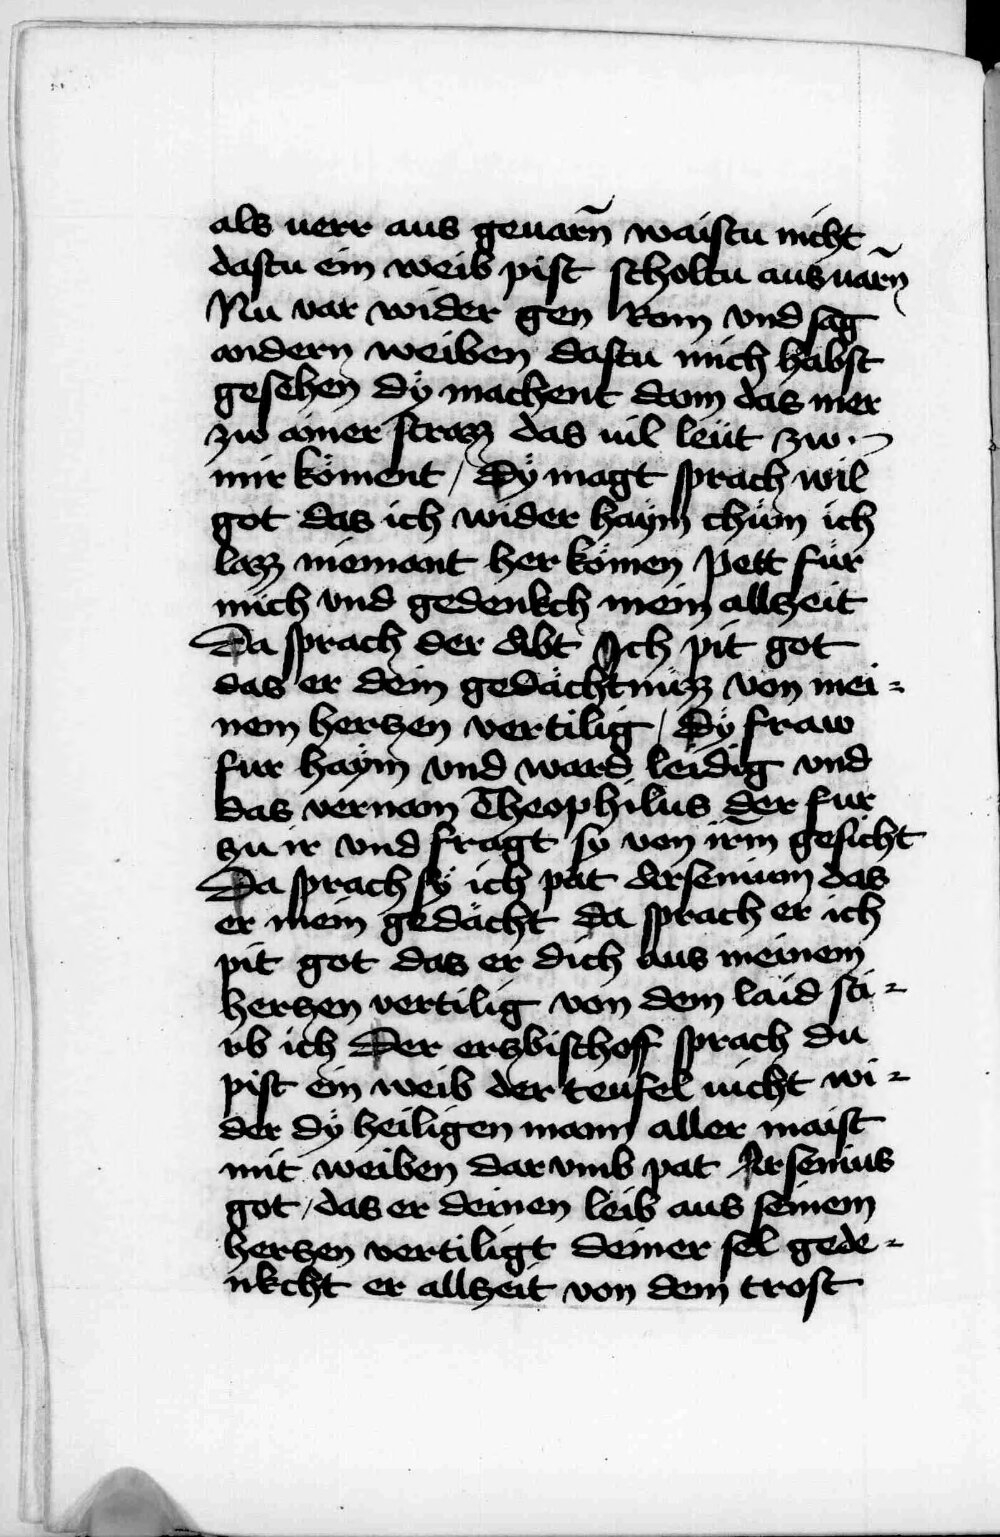 als uerr aus geuarn̄ waistu nicht
dastu ein weib pist scholtu ausuarn̄
Nu var wider gen Rom vnd sag
andern weiben dastu mich habst
gesehen dÿ machent dann das mer
zw ainer strazz das uil leüt zw
mir köment / Dÿ magt sprach wil
got das ich wider haÿm chüm ich
lazz niemant her kömen Pett für
mich vnd gedenkch mein allzeit
Da sprach der abt Ich pit got
das er dein gedächtnüzz von mei=
nem herczen vertilig / Dÿ fraw
fur haÿm vnd ward leidig vnd
das vernam Theophilus der fur
zu ir vnd fragt sy von irm̄ gesicht
Da sprach sÿ ich pat arsenium das
er mein gedächt da sprach er ich
pit got das er dich aus meinem
herczen vertilig von dem laid sti=
rb ich Der erzbischoff sprach du
pist ein weib der teufel uicht wi=
der dÿ heiligen mann aller maist
mit weiben dar vmb pat Arsenius
got / das er deinen leib aus seinem
herczen vertiligt deiner sel gede=
nkcht er allzeit von dem trost